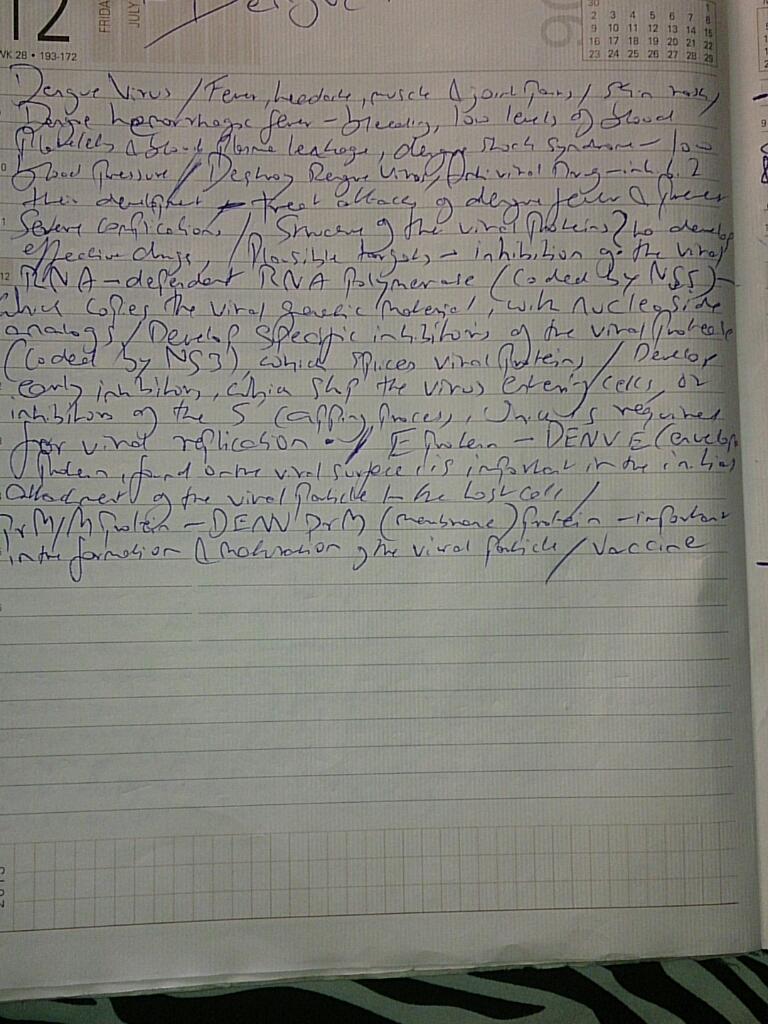 12
FRIDA
JULY
WK 28 • 193-172
Dengue
30 1
2 3 4 5 6 7 8
9 10 11 12 13 14 15
16 17 18 19 20 21 22
23 24 25 26 27 28 29
Dengue Virus / Fever, headache, muscle & joint pains / Skin rash,
Dengue hemorrhagic fever - bleeding, low levels of blood
Platelets & blood plasma leakage, dengue shock syndrome - low
blood pressure / Destroy Dengue virus, Antiviral Drug - inhibit
their development - treat attacks of dengue fever & prevent
Severe complications / Structure of the viral proteins? to develop
effective drugs, / Plausible targets - inhibition of the viral
RNA-dependent RNA Polymerase (Coded by NS5) -
which copies the viral genetic material, with nucleoside
analogs / Develop specific inhibitors of the viral protease
(Coded by NS3), which splices viral proteins / Develop
early inhibitors, which stop the virus entering cells, or
inhibitors of the 5' capping process, which is required
for viral replication. / E Protein - DENV E (envelope
Protein, found on the viral surface & is important in the initial
attachment of the viral particle to the host cell /
PrM/M Protein - DENV PrM (membrane) protein - important
in the formation & maturation of the viral particle / Vaccine